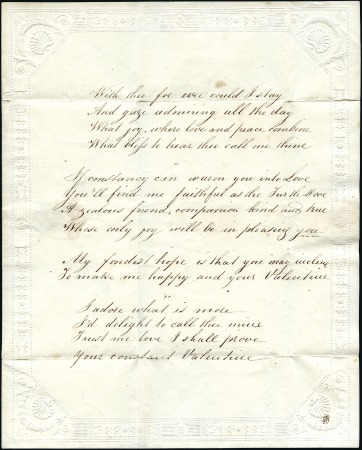 With thee for ever could I stay
And gaze admiring all the day
What joy, where love and peace combine
What bliss to hear thee call me thine
If constancy can warm you into Love
You'll find me faithful as the Turtle Dove
A zealous friend, companion kind and true
Whose only joy will be in pleasing you
My fondest hope is that you may incline
To make me happy and your Valentine
I adore what is more
I'd delight to call thee mine
Trust me love I shall prove
Your constant Valentine